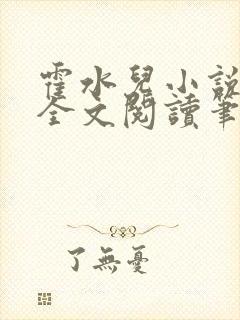 霍水兒小說
全文閱讀筆
了無憂